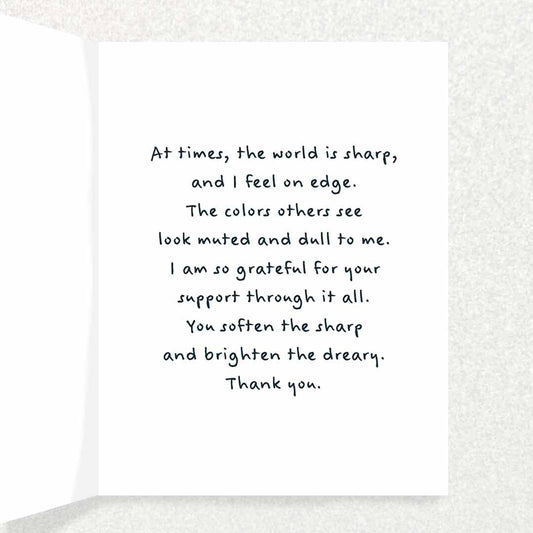 At times, the world is sharp,
and I feel on edge.
The colors others see
look muted and dull to me.
I am so grateful for your
support through it all.
You soften the sharp
and brighten the dreary.
Thank you.